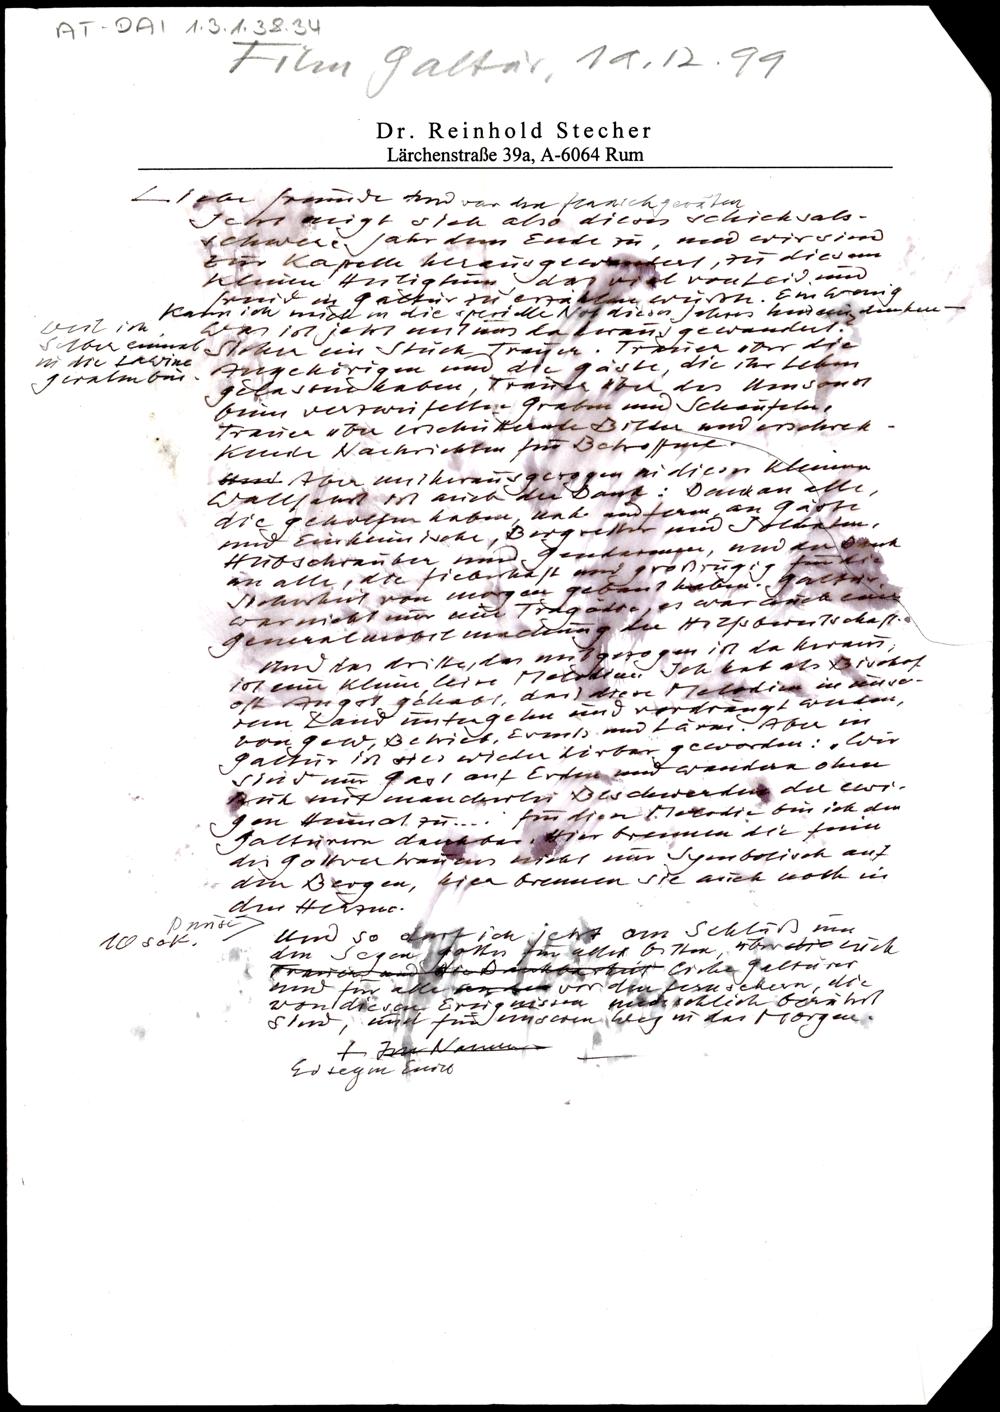 AT-DAI 1.3.1.38.34
Film Galtür, 19.12.99
Dr. Reinhold Stecher
Lärchenstraße 39a, A-6064 Rum
Liebe Freunde und vor den Fernsehgeräten
Jetzt neigt sich also dieses schicksals-
schwere Jahr dem Ende zu, und wir sind
zur Kapelle herausgewandert, zu diesem
kleinen Heiligtum, das viel von Leid und
Freud in Galtür zu erzählen wüsste. Ein wenig
kann ich mich in die spezielle Not dieses Jahres hineindenken –
weil ich
selber einmal
in die Lawine
geraten bin.
Was ist jetzt mit uns da herausgewandert?
Sicher ein Stück Trauer. Trauer über die
Angehörigen und die Gäste, die ihr Leben
gelassen haben, Trauer über das Umsonst
beim verzweifelten Graben und Schaufeln,
Trauer über erschütternde Bilder und erschrek-
kende Nachrichten für Betroffene.
Aber mitherausgezogen in dieser kleinen
Wallfahrt ist auch der Dank: Dank an alle,
die geholfen haben, nah und fern, an Gäste
und Einheimische, Bergretter und Soldaten,
Hubschrauber und Gendarmen, und der Dank
an alle, die fieberhaft und großzügig für die
Sicherheit von morgen gebaut haben. Galtür
war nicht nur eine Tragödie, es war auch eine
Generalmobilmachung der Hilfsbereitschaft.
Und das dritte, das mitgezogen ist da heraus,
ist eine kleine leise Melodie. Ich hab als Bischof
oft Angst gehabt, dass diese Melodien in unse-
rem Land untergehn und verdrängt werden,
von Betrieb, Events und Lärm. Aber in
Galtür ist sie wieder hörbar geworden: „Wir
sind nur Gast auf Erden und wandern ohne
Ruh mit mancherlei Beschwerden der ewi-
gen Heimat zu.... Für diese Melodie bin ich den
Galtürern dankbar. Hier brennen die Feuer
des Gottvertrauens nicht nur symbolisch auf
den Bergen, hier brennen sie auch noch in
den Herzen.
Pause
10 sek.
Und so darf ich jetzt am Schluß um
den Segen Gottes für alles bitten, über euch
Trauer und die Dankbarkeit liebe Galtürer
und für alle vor den Fernsehern, die
von diesen Ereignissen menschlich berührt
sind, und für unseren Weg in das Morgen.
+ Im Namen
Es segne Euch